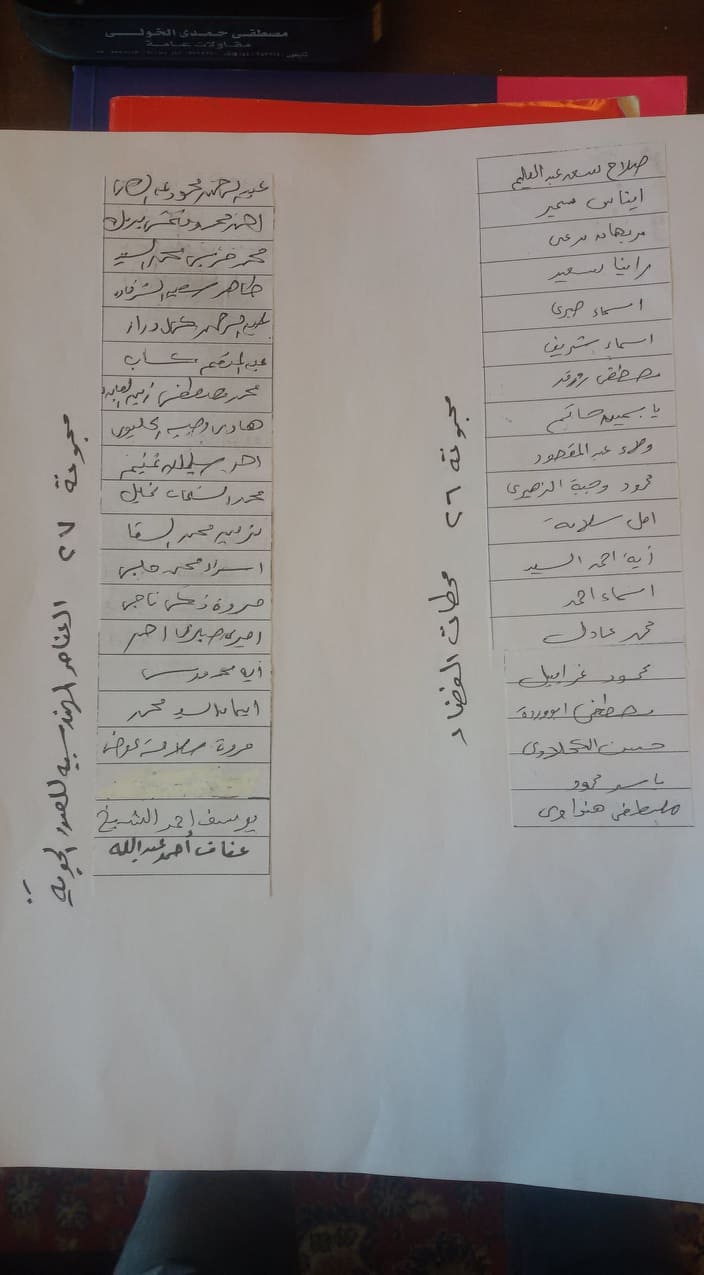 مصطفى حمدى الخولى
مقاولات عامة
مجموعة ٢٦ محطات الفضاء
صلاح سعد عبد العليم
ايناس سمير
مريهان مرعى
رانيا سعيد
اسماء صبرى
اسماء شريف
مصطفى
ياسمين حاتم
ولاء عبد المقصود
محمود وجية الزهيرى
امل سلامة
أية احمد السيد
اسماء احمد
محمد عادل
محمود غرابيل
مصطفى ابووردة
حسن الكحلاوى
ياسر محمود
مصطفى هنداوى
مجموعة ٢٧ العناصر الهندسية للصور الجوية
عبد الرحمن محمود عبد
احمد محمد
محمد محمد السيد
طاهر الشرقاوى
عبد الرحمن كمال دراز
عبد المنعم شاب
محمد مصطفى زين العابدين
هادى وجيه
احمد سليمان غنيم
محمد الشحات خليل
نرمين محمد السقا
اسراء محمد حلبى
مروة زكى ناجى
اميرة صبرى احمد
أية محمد مرسى
ايمان السيد محمد
مروة سلامة عوض
يوسف احمد الشيخ
عفاف أحمد عبد الله